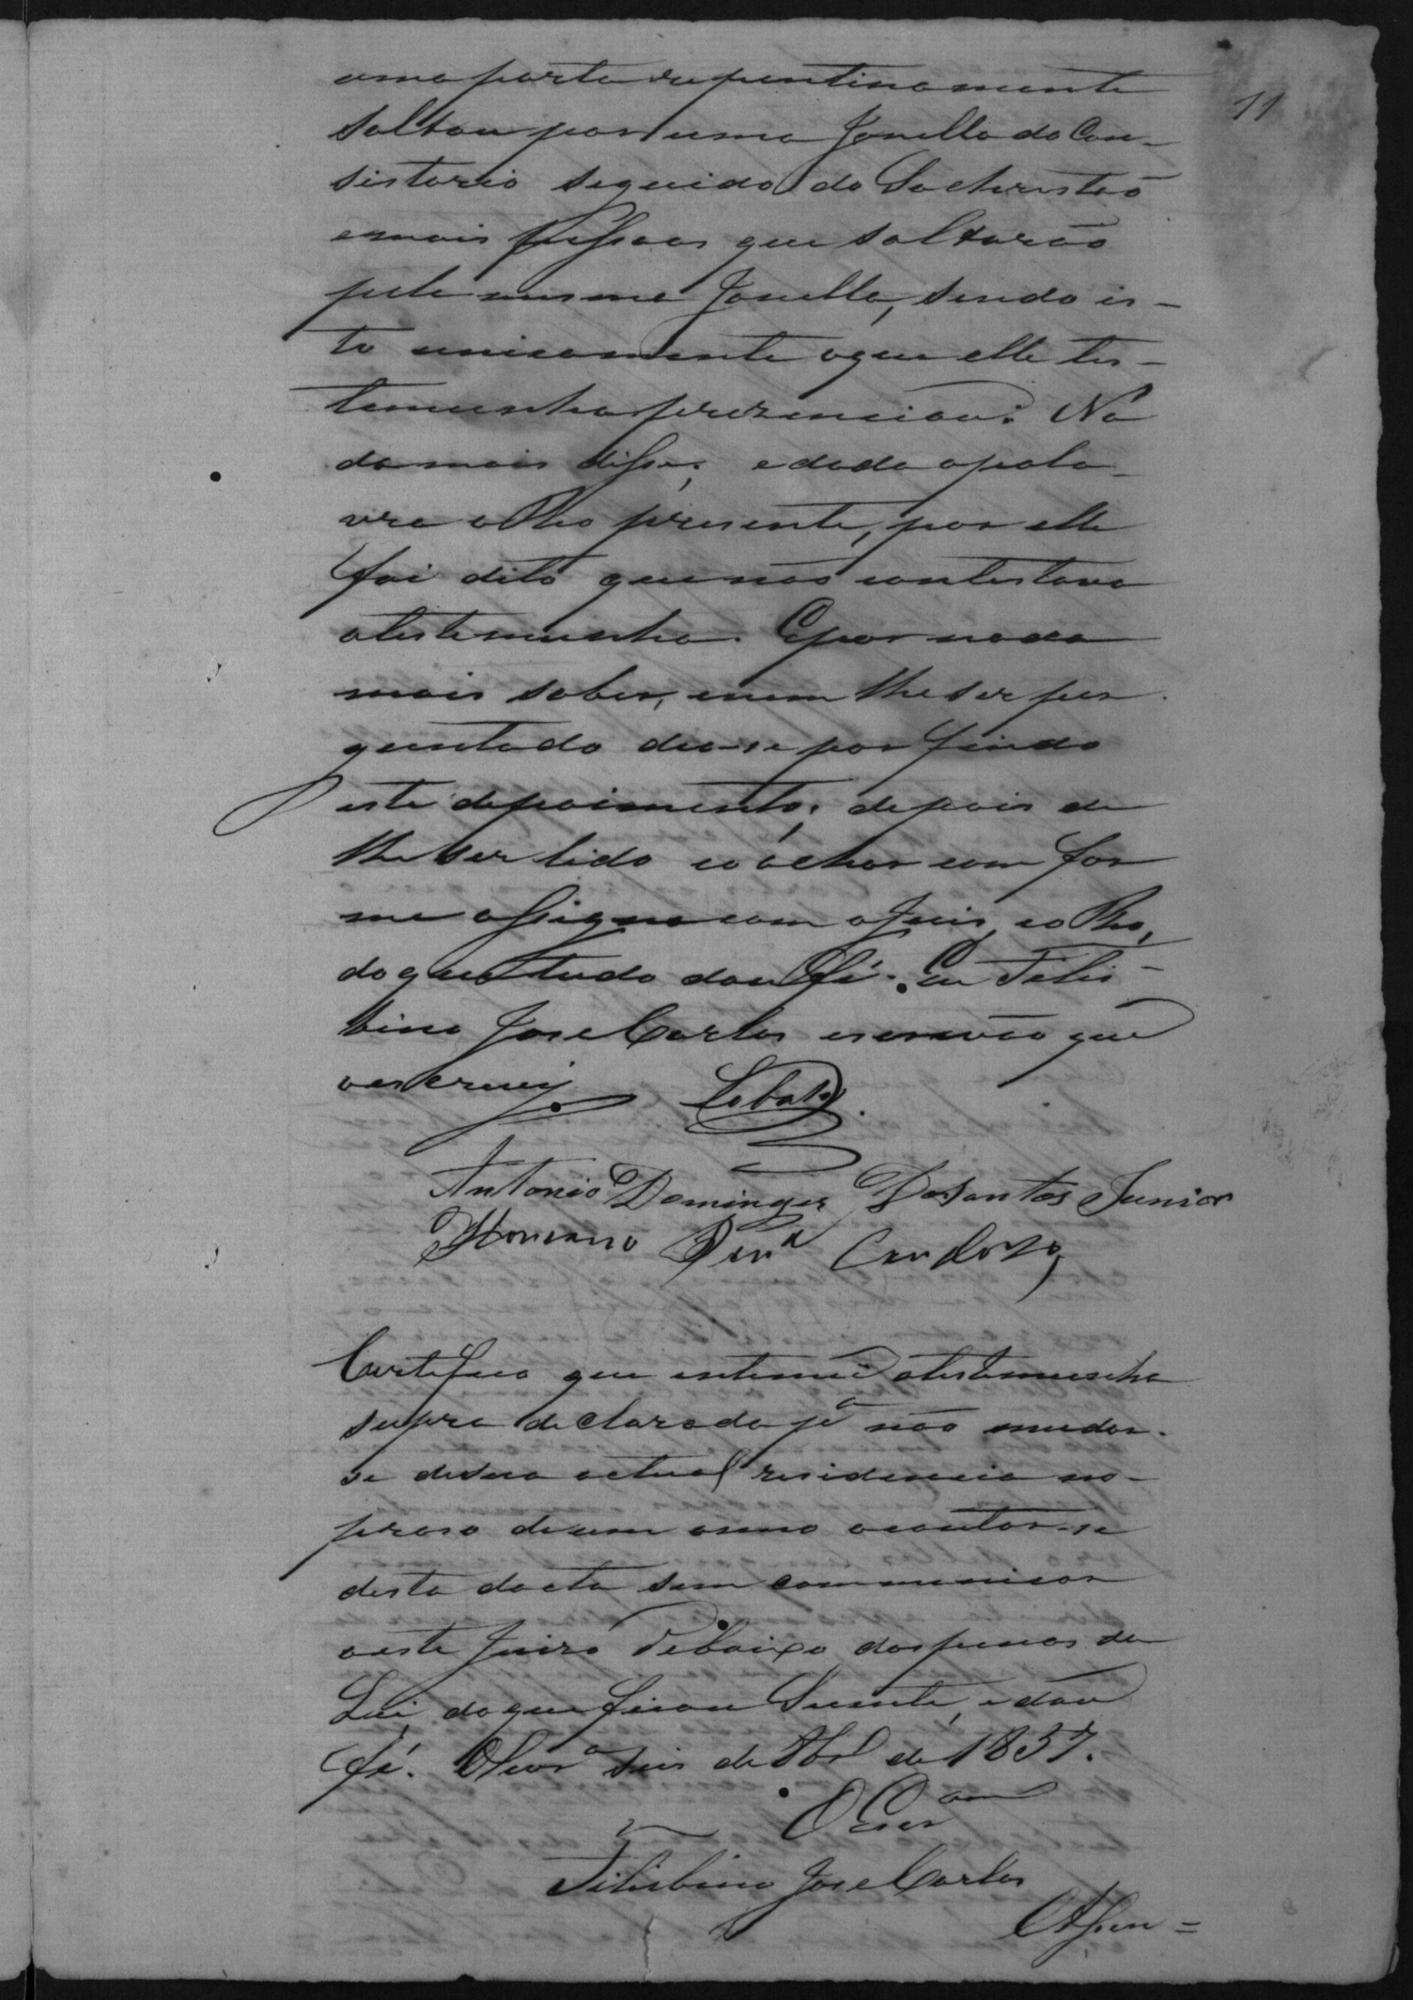 11
uma porta repentinamente
saltou por uma Janella do Con-
sistorio seguido do Sachristão
e mais pessoas que saltarão
pela mesma Janella, sendo is-
to unicamente o que elle tes-
temunha prezenciou. Na
da mais disse, e dada a pala-
vra o Reo presente, por elle
foi dito que não contestava
a testemunha. E por nada
mais saber, e nem lhe ser per
guntado deu-se por findo
este depoimento, depois de
lhe ser lido e o achar com for
me assigna com o Juis, e o Reo,
do que tudo dou fé. Eu Felis-
bino Jose Carlos escrivão que
o escrevy.
Lobato
Antonio Domingues Dos Santos Junior
Floriano Per.a Cardozo
Certifico que intimei a testemunha
supra declarada p.a não mudar-
se de sua actual residencia no
praso de um anno a contar-se
desta dacta sem communicar
a este Juiso debaixo das penas da
Lei, do que ficou Siente, e dou
fé. seis de de 1857.
O Escr.am
Felisbino Jose Carlos
Assen=